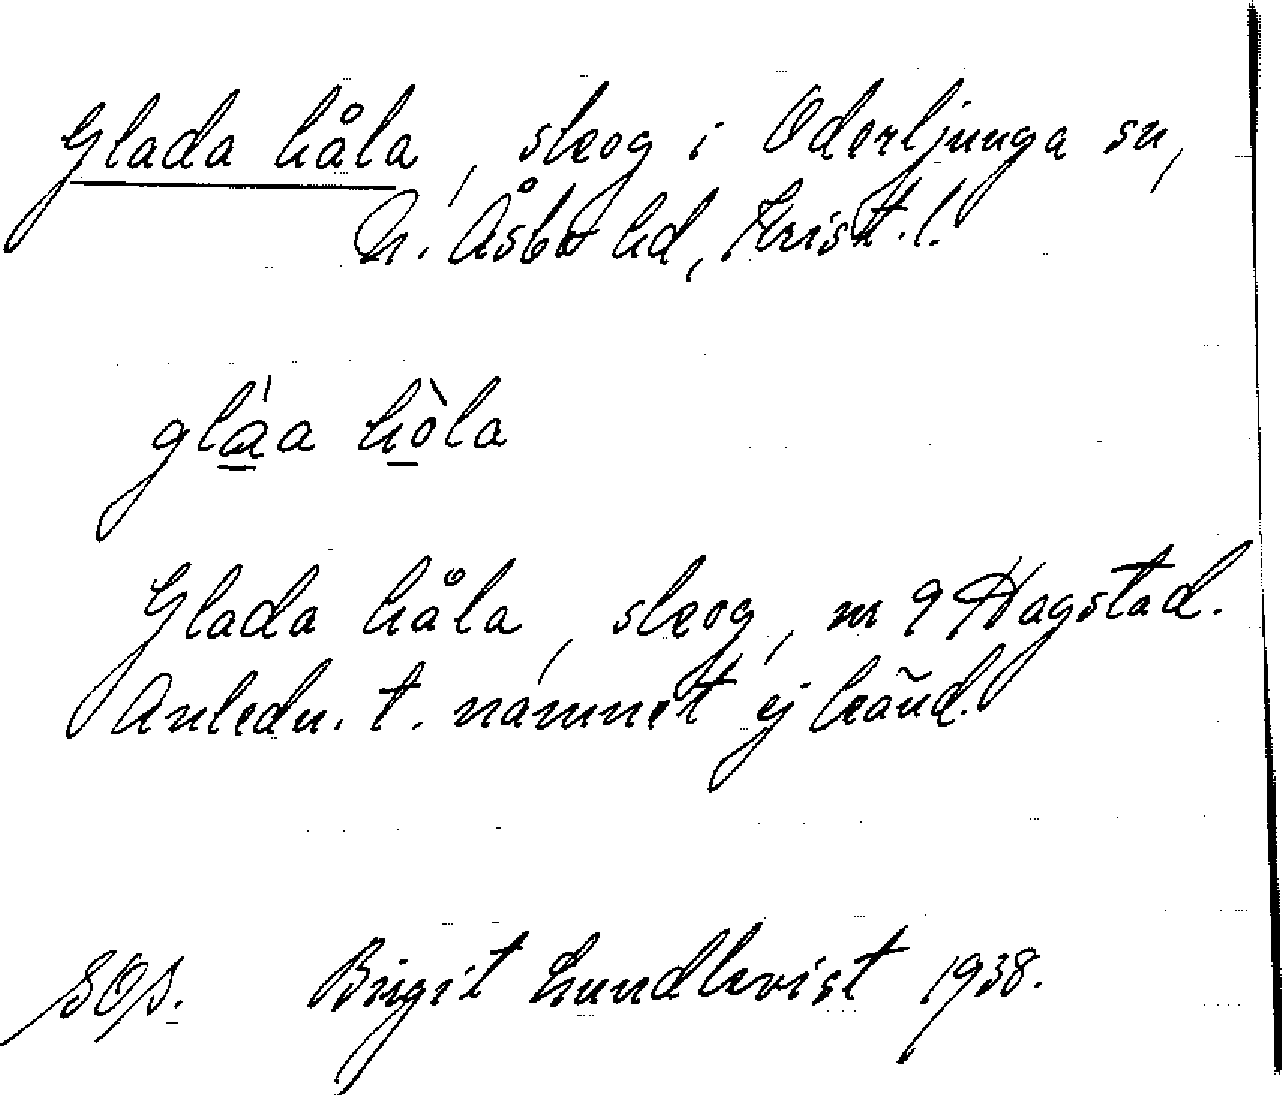 Glada håla, skog i Oderljunga sn,
N. Åsbo hd, Krist. l.
glàa hòla
Glada håla, skog, m 9 Hagstad.
Anledn. t. namnet ej känd.
SOS. Birgit Lundkvist 1938.